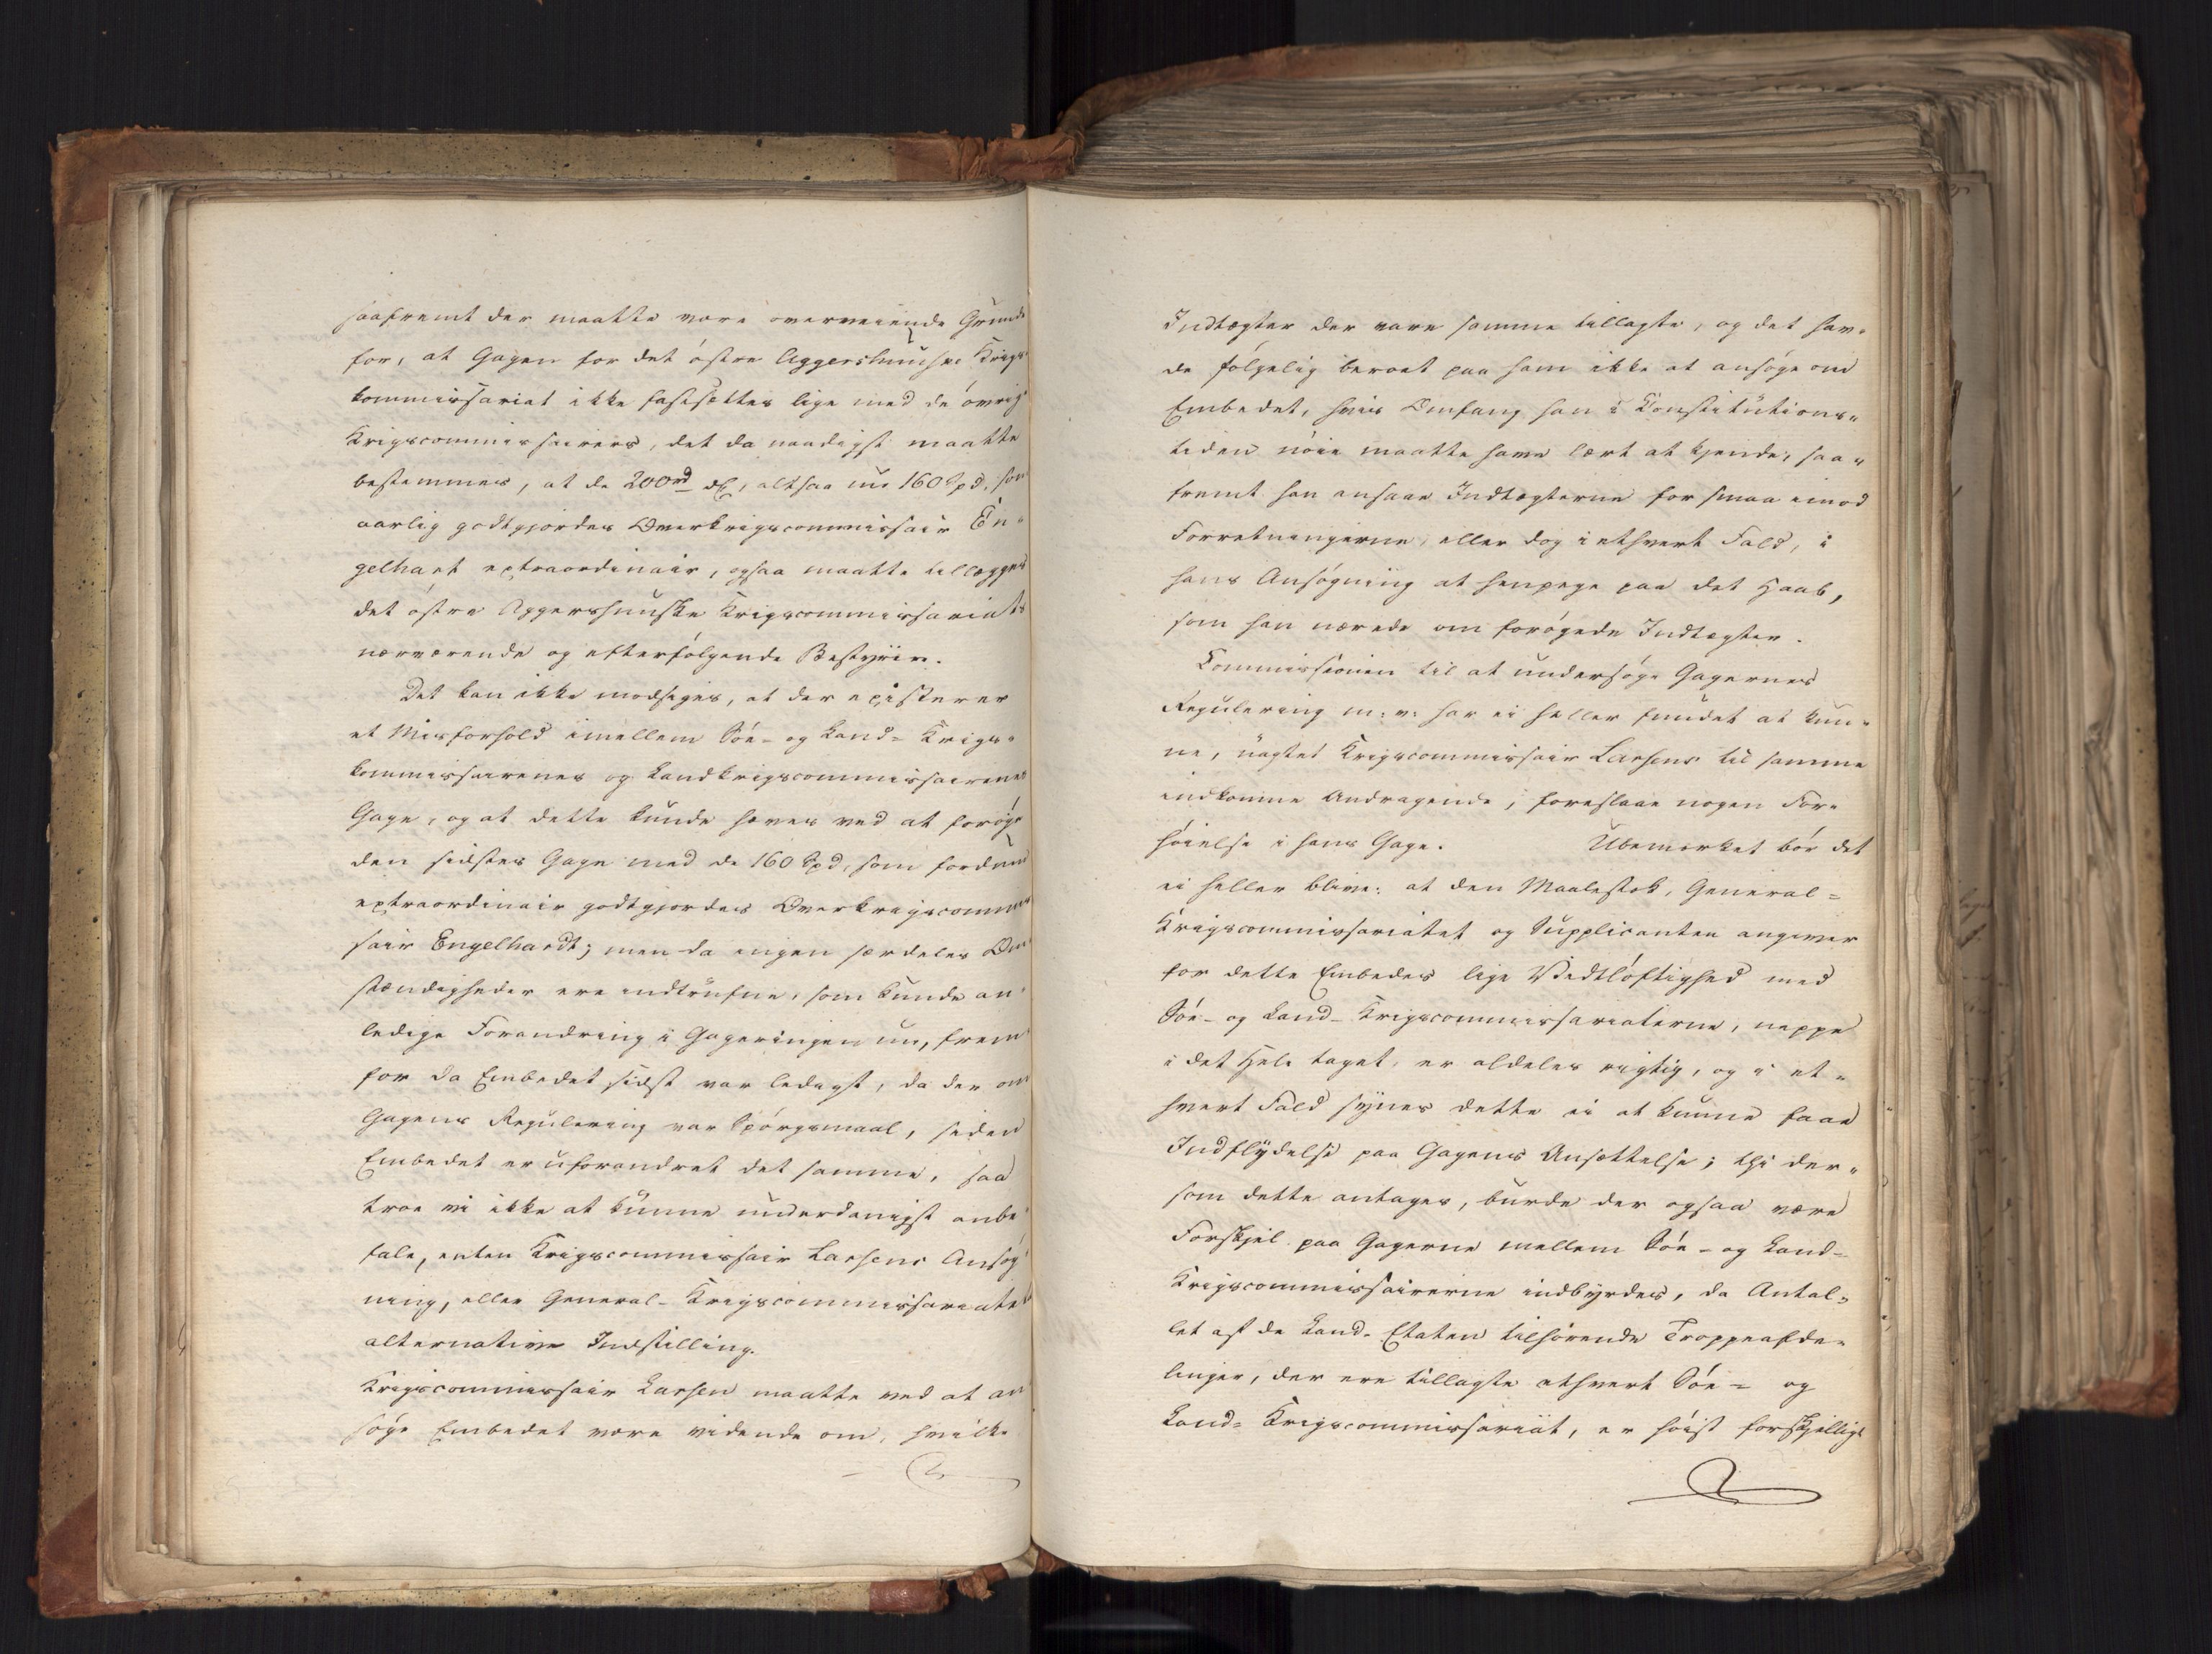 saafremt der maatte være overveiende Grunde
for, at Gagen for det östre Aggershuuske Krigs-
kommissariat ikke fastsættes lige med de övrige
Krigscommissairers, det da naadigst maatte
bestemmes, at de 200rd, altsaa nu 160 Spd, som
aarlig godtgjordes Overkrigscommissair En-
gelhart extraordinair, ogsaa maatte tillægges
det östre Aggershuuske Krigscommissariats
nærværende og efterfölgende Bestyrer.
Det kan ikke modsiges, at der existerer
et Misforhold imellem Söe- og Land- Krigs-
kommissairenes og Landkrigscommissairenes
Gage, og at dette kunde hæves ved at foröge
den sidstes Gage med de 160 Spd, som fordum
extraordinair godtgjordes Overkrigscommis
sair Engelhardt; men da ingen særdeles Om
stændigheder ere indtrufne, som kunde an-
ledige Forandring i Gageringen nu, frem
for da Embedet sidst var ledigt, da der om
Gagens Regulering var Spörgsmaal, siden
Embedet er uforandret det samme, saa
troe vi ikke at kunne underdanigst anbe
fale, enten Krigscommissair Larsens Ansög
ning, eller General- Krigscommissariatets
alternative Indstilling.
Krigscommissair Larsen maatte ved at an
söge Embedet være vidende om, hvilke
Indtægter der vare samme tillagte, og det hav-
de fölgelig beroet paa ham ikke at ansöge om
Embedet, hvis Omfang han i Constitutions-
tiden nöie maatte have lært at kjende, saa-
fremt han ansaae Indtægterne for smaa imod
Forretningerne, eller dog i ethvert Fald, i
hans Ansögning at henpege paa det Haab,
som han nærede om forögede Indtægter.
Commissionen til at undersöge Gagernes
Regulering m: v: har ei heller fundet at kun-
ne, uagtet Krigscommissair Larsens til samme
indkomne Andragende, foreslaae nogen For-
höielse i hans Gage. Ubemærket bör det
ei heller blive: at den Maalestok, General-
Krigscommissariatet og Supplicanten angiver
for dette Embedes lige Vidtlöftighed med
Söe- og Land- Krigscommissariaterne, neppe
i det Hele taget, er aldeles rigtig, og i et-
hvert Fald synes dette ei at kunne faae
Indflydelse paa Gagens Ansættelse; thi der-
som dette antages, burde der ogsaa være
Forskjel paa Gagerne mellem Söe- og Land-
Krigscommissairerne indbyrdes, da Antal-
let af de Land- Etaten tilhörende Troppeafde-
linger, der ere tillagte ethvert Söe- og
Land- Krigscommissariat, er höist forskjelligt